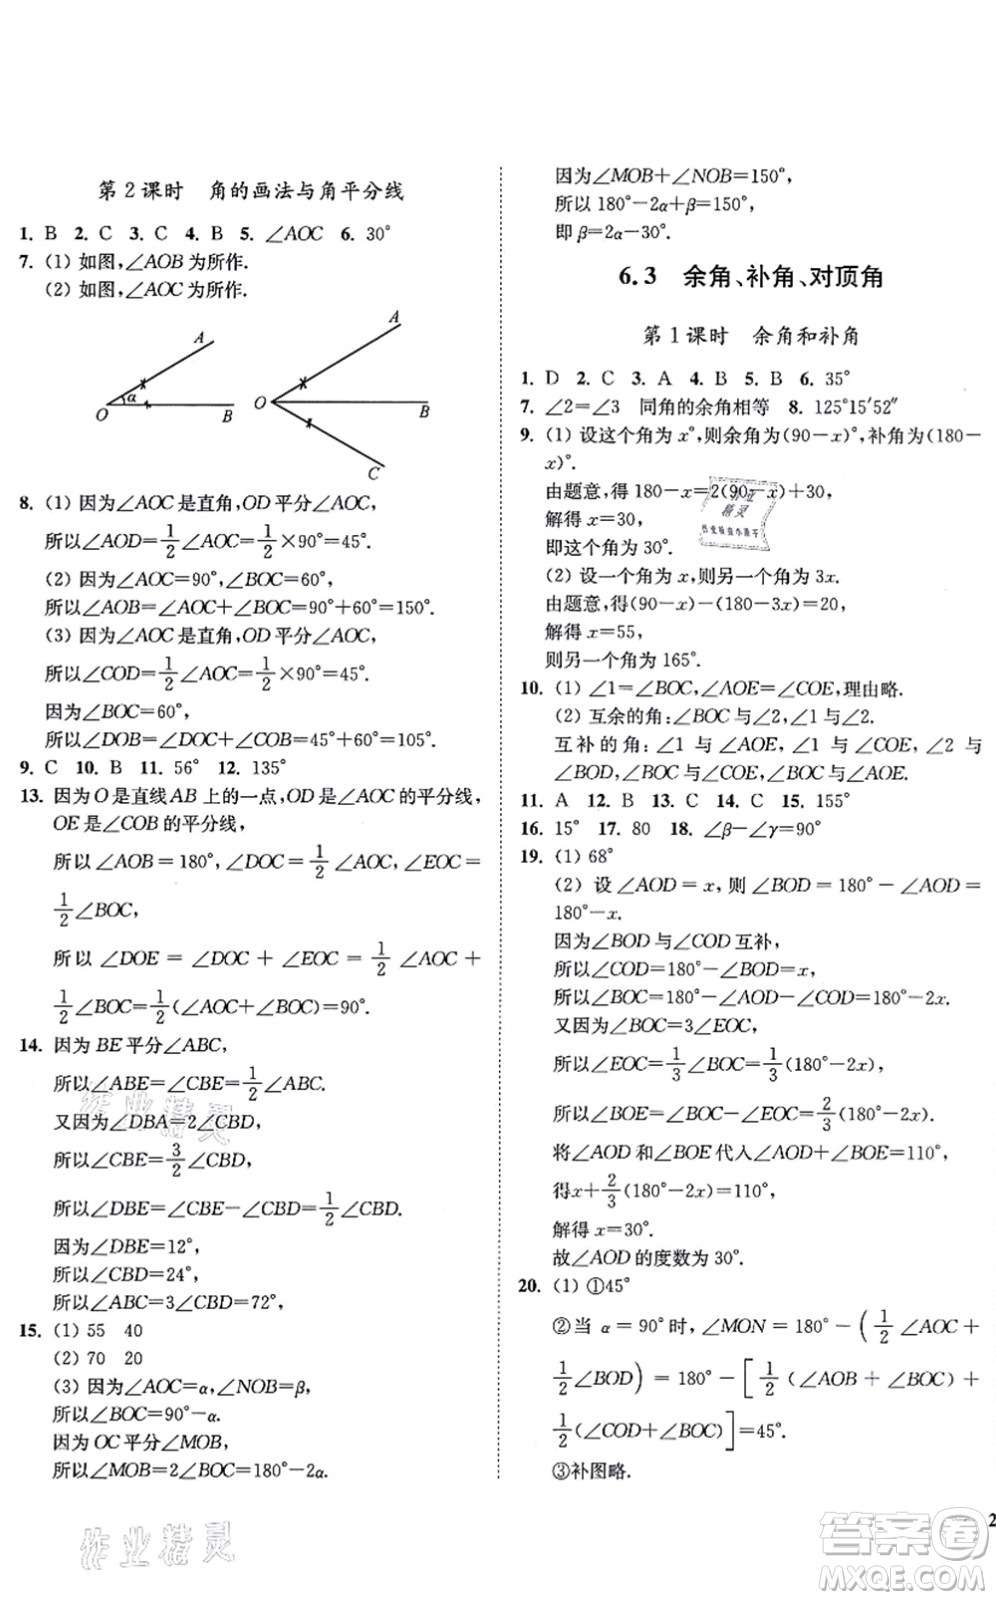 第2课时 角的画法与角平分线
1. B 2. C 3. C 4. B 5. ∠AOC 6. 30°
7. (1) 如图,∠AOB为所作.
(2) 如图,∠AOC为所作.
A
O
α
B
A
O
B
C
8. (1) 因为∠AOC是直角,OD平分∠AOC,
所以∠AOD=1/2∠AOC=1/2×90°=45°.
(2) 因为∠AOC=90°,∠BOC=60°,
所以∠AOB=∠AOC+∠BOC=90°+60°=150°.
(3) 因为∠AOC是直角,OD平分∠AOC,
所以∠COD=1/2∠AOC=1/2×90°=45°.
因为∠BOC=60°,
所以∠DOB=∠DOC+∠COB=45°+60°=105°.
9. C 10. B 11. 56° 12. 135°
13. 因为O是直线AB上的一点,OD是∠AOC的平分线,
OE是∠COB的平分线,
所以∠AOB=180°,∠DOC=1/2∠AOC,∠EOC=
1/2∠BOC,
所以∠DOE=∠DOC+∠EOC=1/2∠AOC+
1/2∠BOC=1/2(∠AOC+∠BOC)=90°.
14. 因为BE平分∠ABC,
所以∠ABE=∠CBE=1/2∠ABC.
又因为∠DBA=2∠CBD,
所以∠CBE=3/2∠CBD,
所以∠DBE=∠CBE-∠CBD=1/2∠CBD.
因为∠DBE=12°,
所以∠CBD=24°,
所以∠ABC=3∠CBD=72°,
15. (1) 55 40
(2) 70 20
(3) 因为∠AOC=α,∠NOB=β,
所以∠BOC=90°-α.
因为OC平分∠MOB,
所以∠MOB=2∠BOC=180°-2α.
作业精灵
作业精灵
因为∠MOB+∠NOB=150°,
所以180°-2α+β=150°,
即β=2α-30°.
6.3 余角、补角、对顶角
第1课时 余角和补角
1. D 2. C 3. A 4. B 5. B 6. 35°
7. ∠2=∠3 同角的余角相等 8. 125°15′52″
9. (1) 设这个角为x°,则余角为(90-x)°,补角为(180-
x)°.
由题意,得180-x=2(90-x)+30,
解得x=30,
即这个角为30°.
(2) 设一个角为x,则另一个角为3x.
由题意,得(90-x)-(180-3x)=20,
解得x=55,
则另一个角为165°.
10. (1) ∠1=∠BOC,∠AOE=∠COE,理由略.
(2) 互余的角:∠BOC与∠2,∠1与∠2.
互补的角:∠1与∠AOE,∠1与∠COE,∠2与
∠BOD,∠BOC与∠COE,∠BOC与∠AOE.
11. A 12. B 13. C 14. C 15. 155°
16. 15° 17. 80 18. ∠β-∠γ=90°
19. (1) 68°
(2) 设∠AOD=x,则∠BOD=180°-∠AOD=
180°-x.
因为∠BOD与∠COD互补,
所以∠COD=180°-∠BOD=x,
所以∠BOC=180°-∠AOD-∠COD=180°-2x.
又因为∠BOC=3∠EOC,
所以∠EOC=1/3∠BOC=1/3(180°-2x),
所以∠BOE=∠BOC-∠EOC=2/3(180°-2x).
将∠AOD和∠BOE代入∠AOD+∠BOE=110°,
得x+2/3(180°-2x)=110°,
解得x=30°.
故∠AOD的度数为30°.
20. (1) ①45°
②当α=90°时,∠MON=180°-(1/2∠AOC+
1/2∠BOD)=180°-[1/2(∠AOB+∠BOC)+
1/2(∠COD+∠BOC)]=45°.
③补图略.
2
答案卷
MXQE.COM